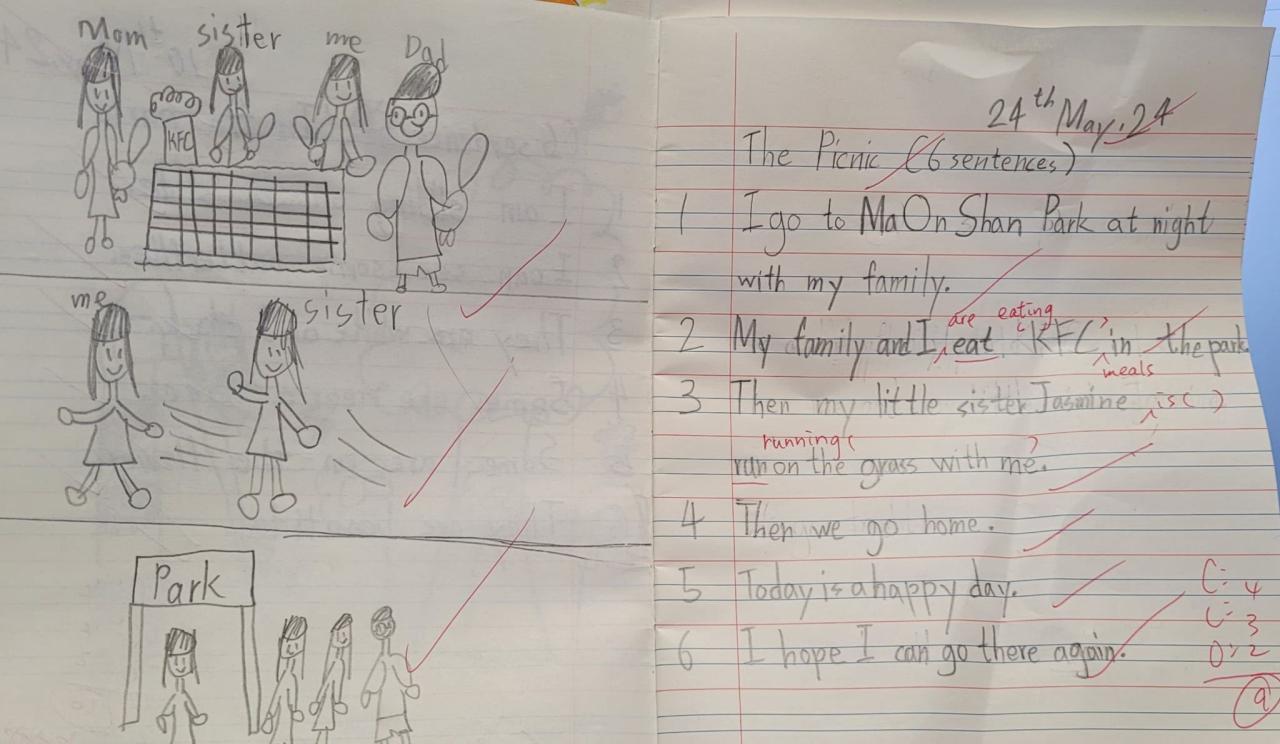 Mom sister me Dad
KFC
me sister
Park
24th May. 24
The Picnic (6 sentences)
1 I go to Ma On Shan Park at night
with my family.
are eating
2 My family and I eat "KFC" in the park
meals
3 Then my little sister Jasmine is ( )
running
run on the grass with me.
4 Then we go home.
5 Today is a happy day.
6 I hope I can go there again.
C: 4
L: 3
O: 2
9